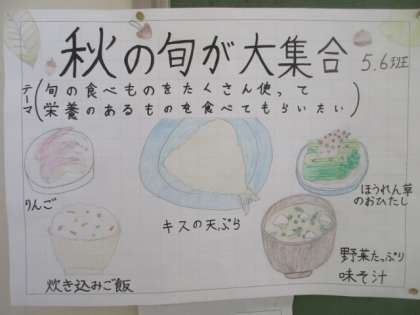 秋の旬が大集合
5.6班
テーマ
旬の食べものをたくさん使って
栄養のあるものを食べてもらいたい
りんご
キスの天ぷら
ほうれん草
のおひたし
炊き込みご飯
野菜たっぷり
味そ汁